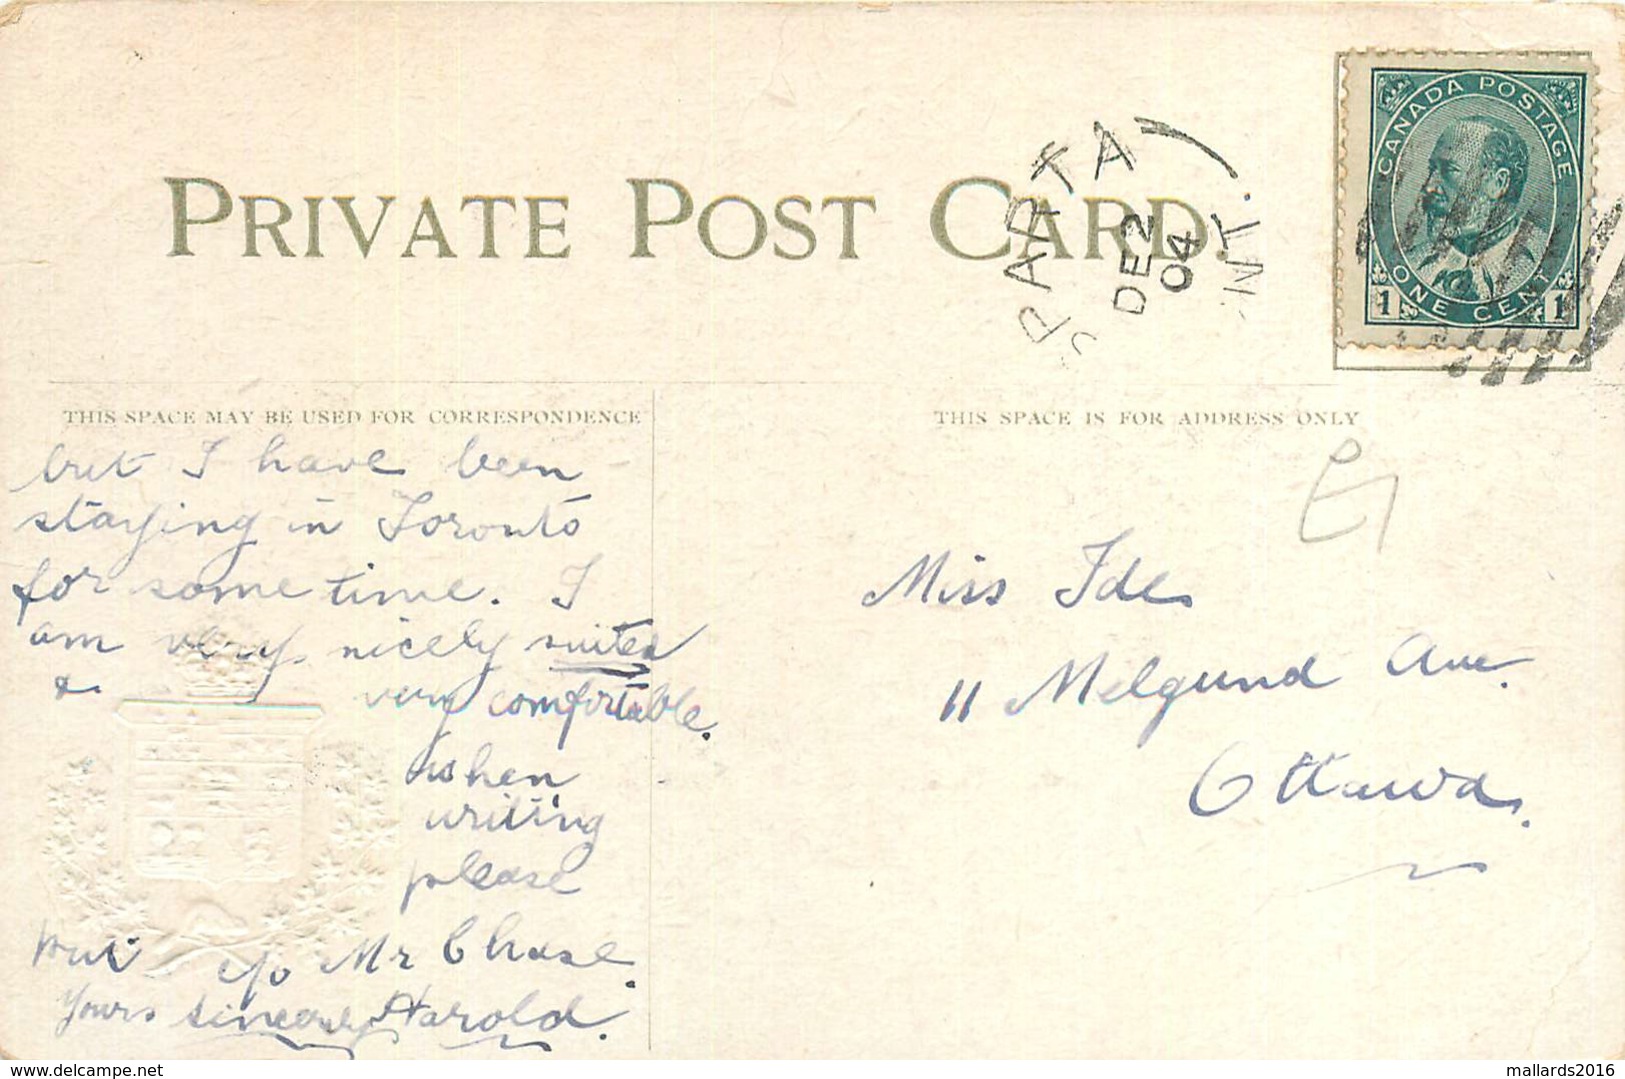 PRIVATE POST CARD.
SPARTA
DE 2
04
NT.
CANADA POSTAGE
ONE CENT
1 1
THIS SPACE MAY BE USED FOR CORRESPONDENCE
THIS SPACE IS FOR ADDRESS ONLY
but I have been
staying in Toronto
for some time. I
am very nicely suited
& very comfortable.
when
writing
please
put c/o Mr Chase.
Yours sincerely Harold.
Miss Ide
11 Melgund Ave.
Ottawa.
delcampe.net
mallards2016